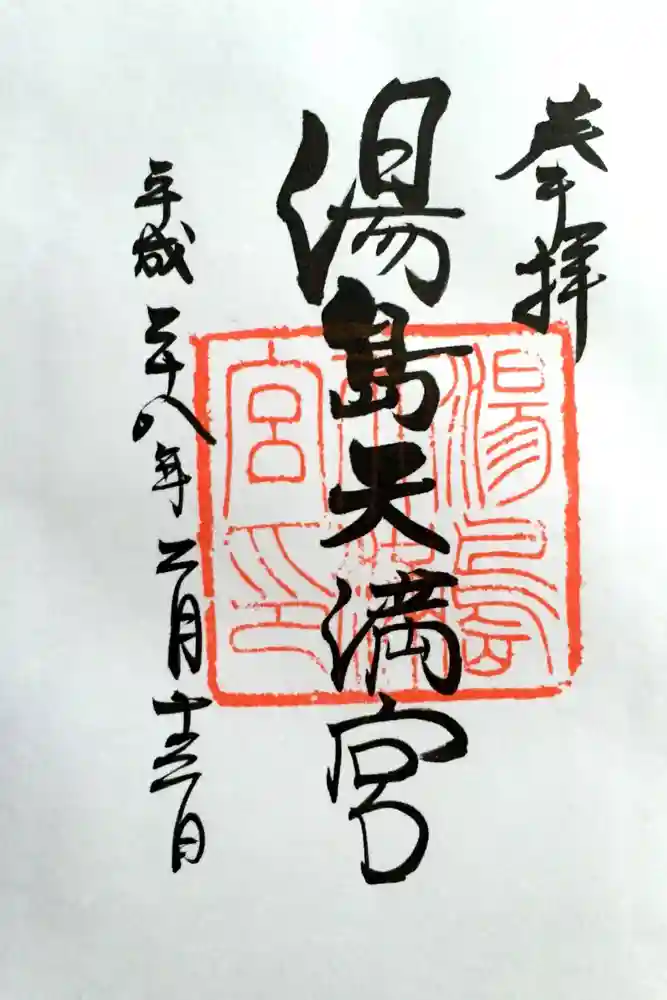 奉拝
湯島天満宮
湯島天満宮印
平成二十八年二月十三日